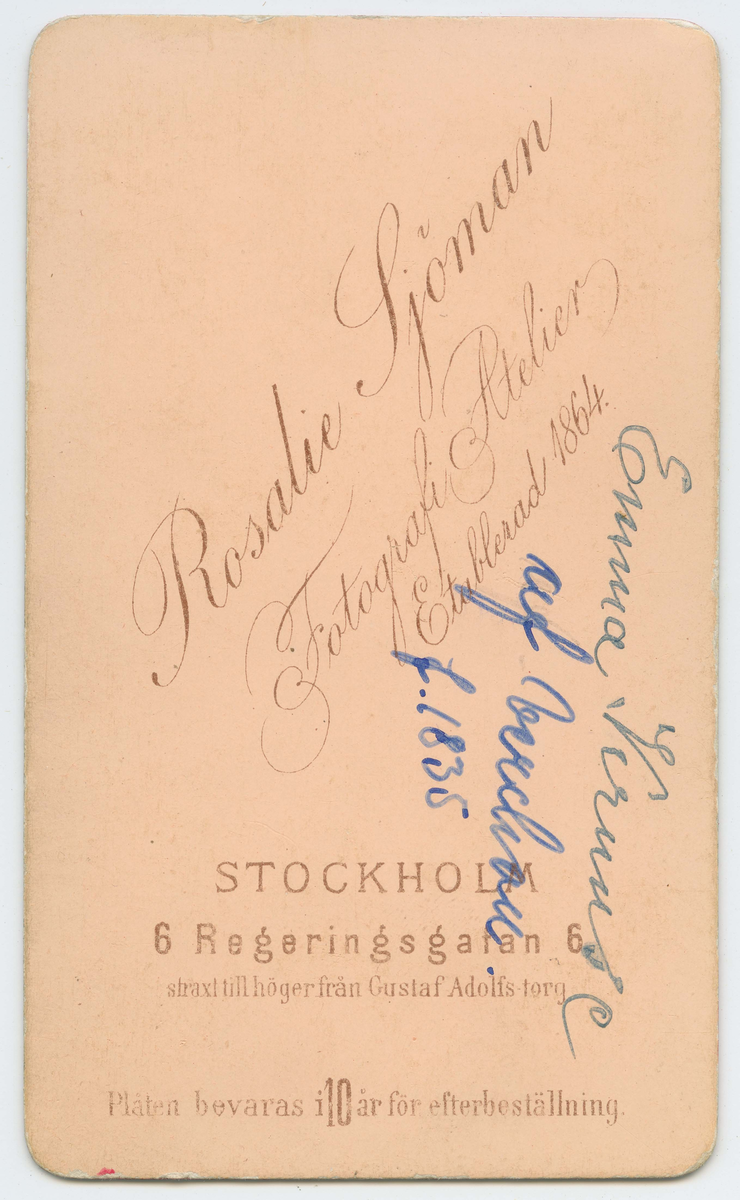 Rosalie Sjöman
Fotografi Atelier
Etablerad 1864.
STOCKHOLM
6 Regeringsgatan 6.
straxt till höger från Gustaf Adolfs-torg
Plåten bevaras i 10 år för efterbeställning.
Emma
af
f. 1835